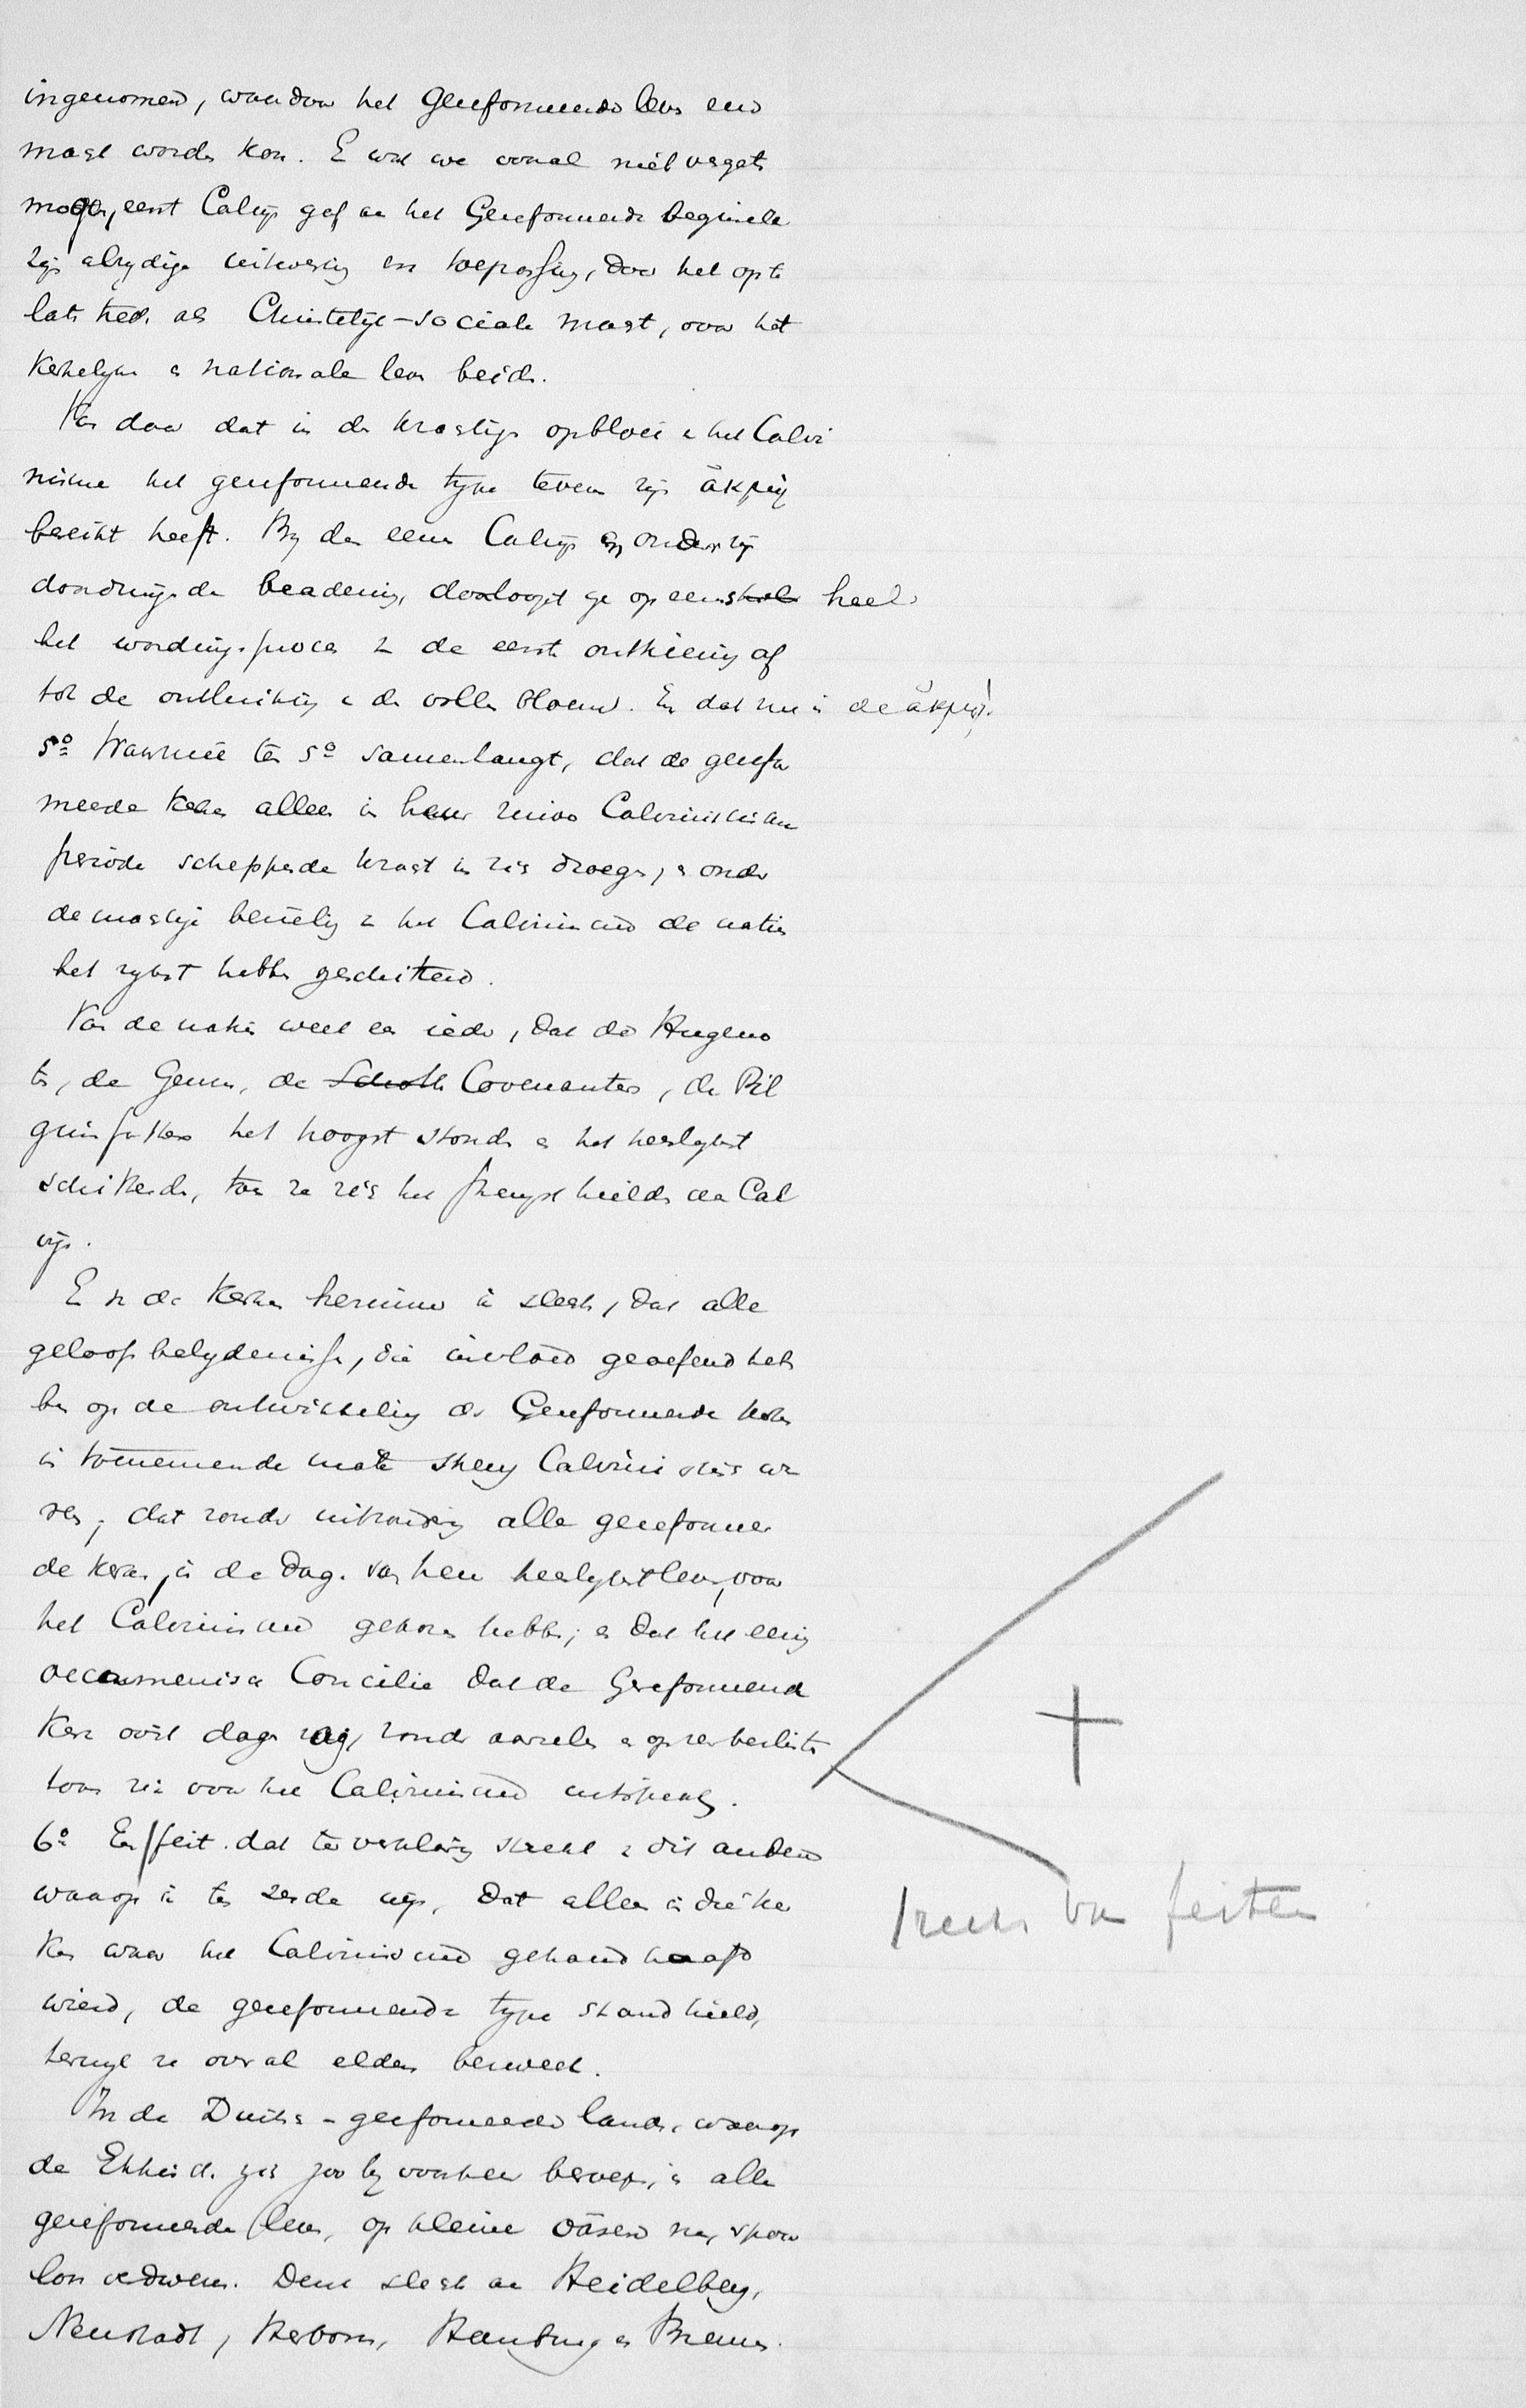 ingenomen, waardoor het Gereformeerde leven een
macht worden kon. En wat we vooral niet vergeten
mogen, eerst Calvijn gaf aan het Gereformeerde beginsel
zijn alzydige uitwerking en toepassing, door het op te
laten treden als Christelijk-sociale macht, voor het
Kerkelyke en nationale leven beide.
Van daar dat in de krachtige opbloei van het Calvi
nisme het gereformeerde type tevens zijn ἀκμή
bereikt heeft. By den eenen Calvijn en onder zijn
bezieling, doorloopt ge op eens heel
het wordingsproces van de eerste ontkieming af
tot de ontluiking van de volle bloem. En dat nu is de ἀκμή!
5º Waarmee ten 5º samenhangt, dat de gerefor
meerde Kerken alleen in haar zuiver Calvinistische
periode scheppende kracht in zich droegen, en onder
de machtige bezieling van het Calvinisme de natiën
het rykst hebben geschitterd.
Van de natiën weet een ieder, dat de Hugeno
ten, de Geuzen, de Schotsche Covenanters, de Pil
grimfathers het hoogst stonden en het heerlykst
schitterden, toen ze zich het strengst hielden aan Cal
vijn.
En van de Kerken herinner ik slechts, dat alle
geloofsbelydenissen, die invloed geoefend heb
ben op de ontwikkeling der Gereformeerde kerken
in toenemende mate streng Calvinistisch wa
ren; dat zonder uitzondering alle gereformeer
de kerken, in de dagen van hun heerlykst leven, voor
het Calvinisme gekozen hebben; en dat het eenig
oecumenisch Concilie dat de Gereformeerde
Kerk ooit dagen zag, zonder aarzelen en op zeer beslisten
toon zich voor het Calvinisme uitsprak.
6º Een feit dat ter verklaring strekt van dit andere
waarop ik ten zesde wijs, dat alleen in die ker
ken waar het Calvinisme gehandhaafd
wierd, de gereformeerde type stand hield,
terwyl ze overal elders bezweek.
In de Duitsch-gereformeerde landen, waarop
de Ethischen zich zoo by voorkeur beroepen, is alle
gereformeerde leven, op kleine oasen na, spoor
loos verdwenen. Denk slechts aan Heidelberg,
Neustadt, Herborn, Hamburg en Bremen.
reeks van feiten